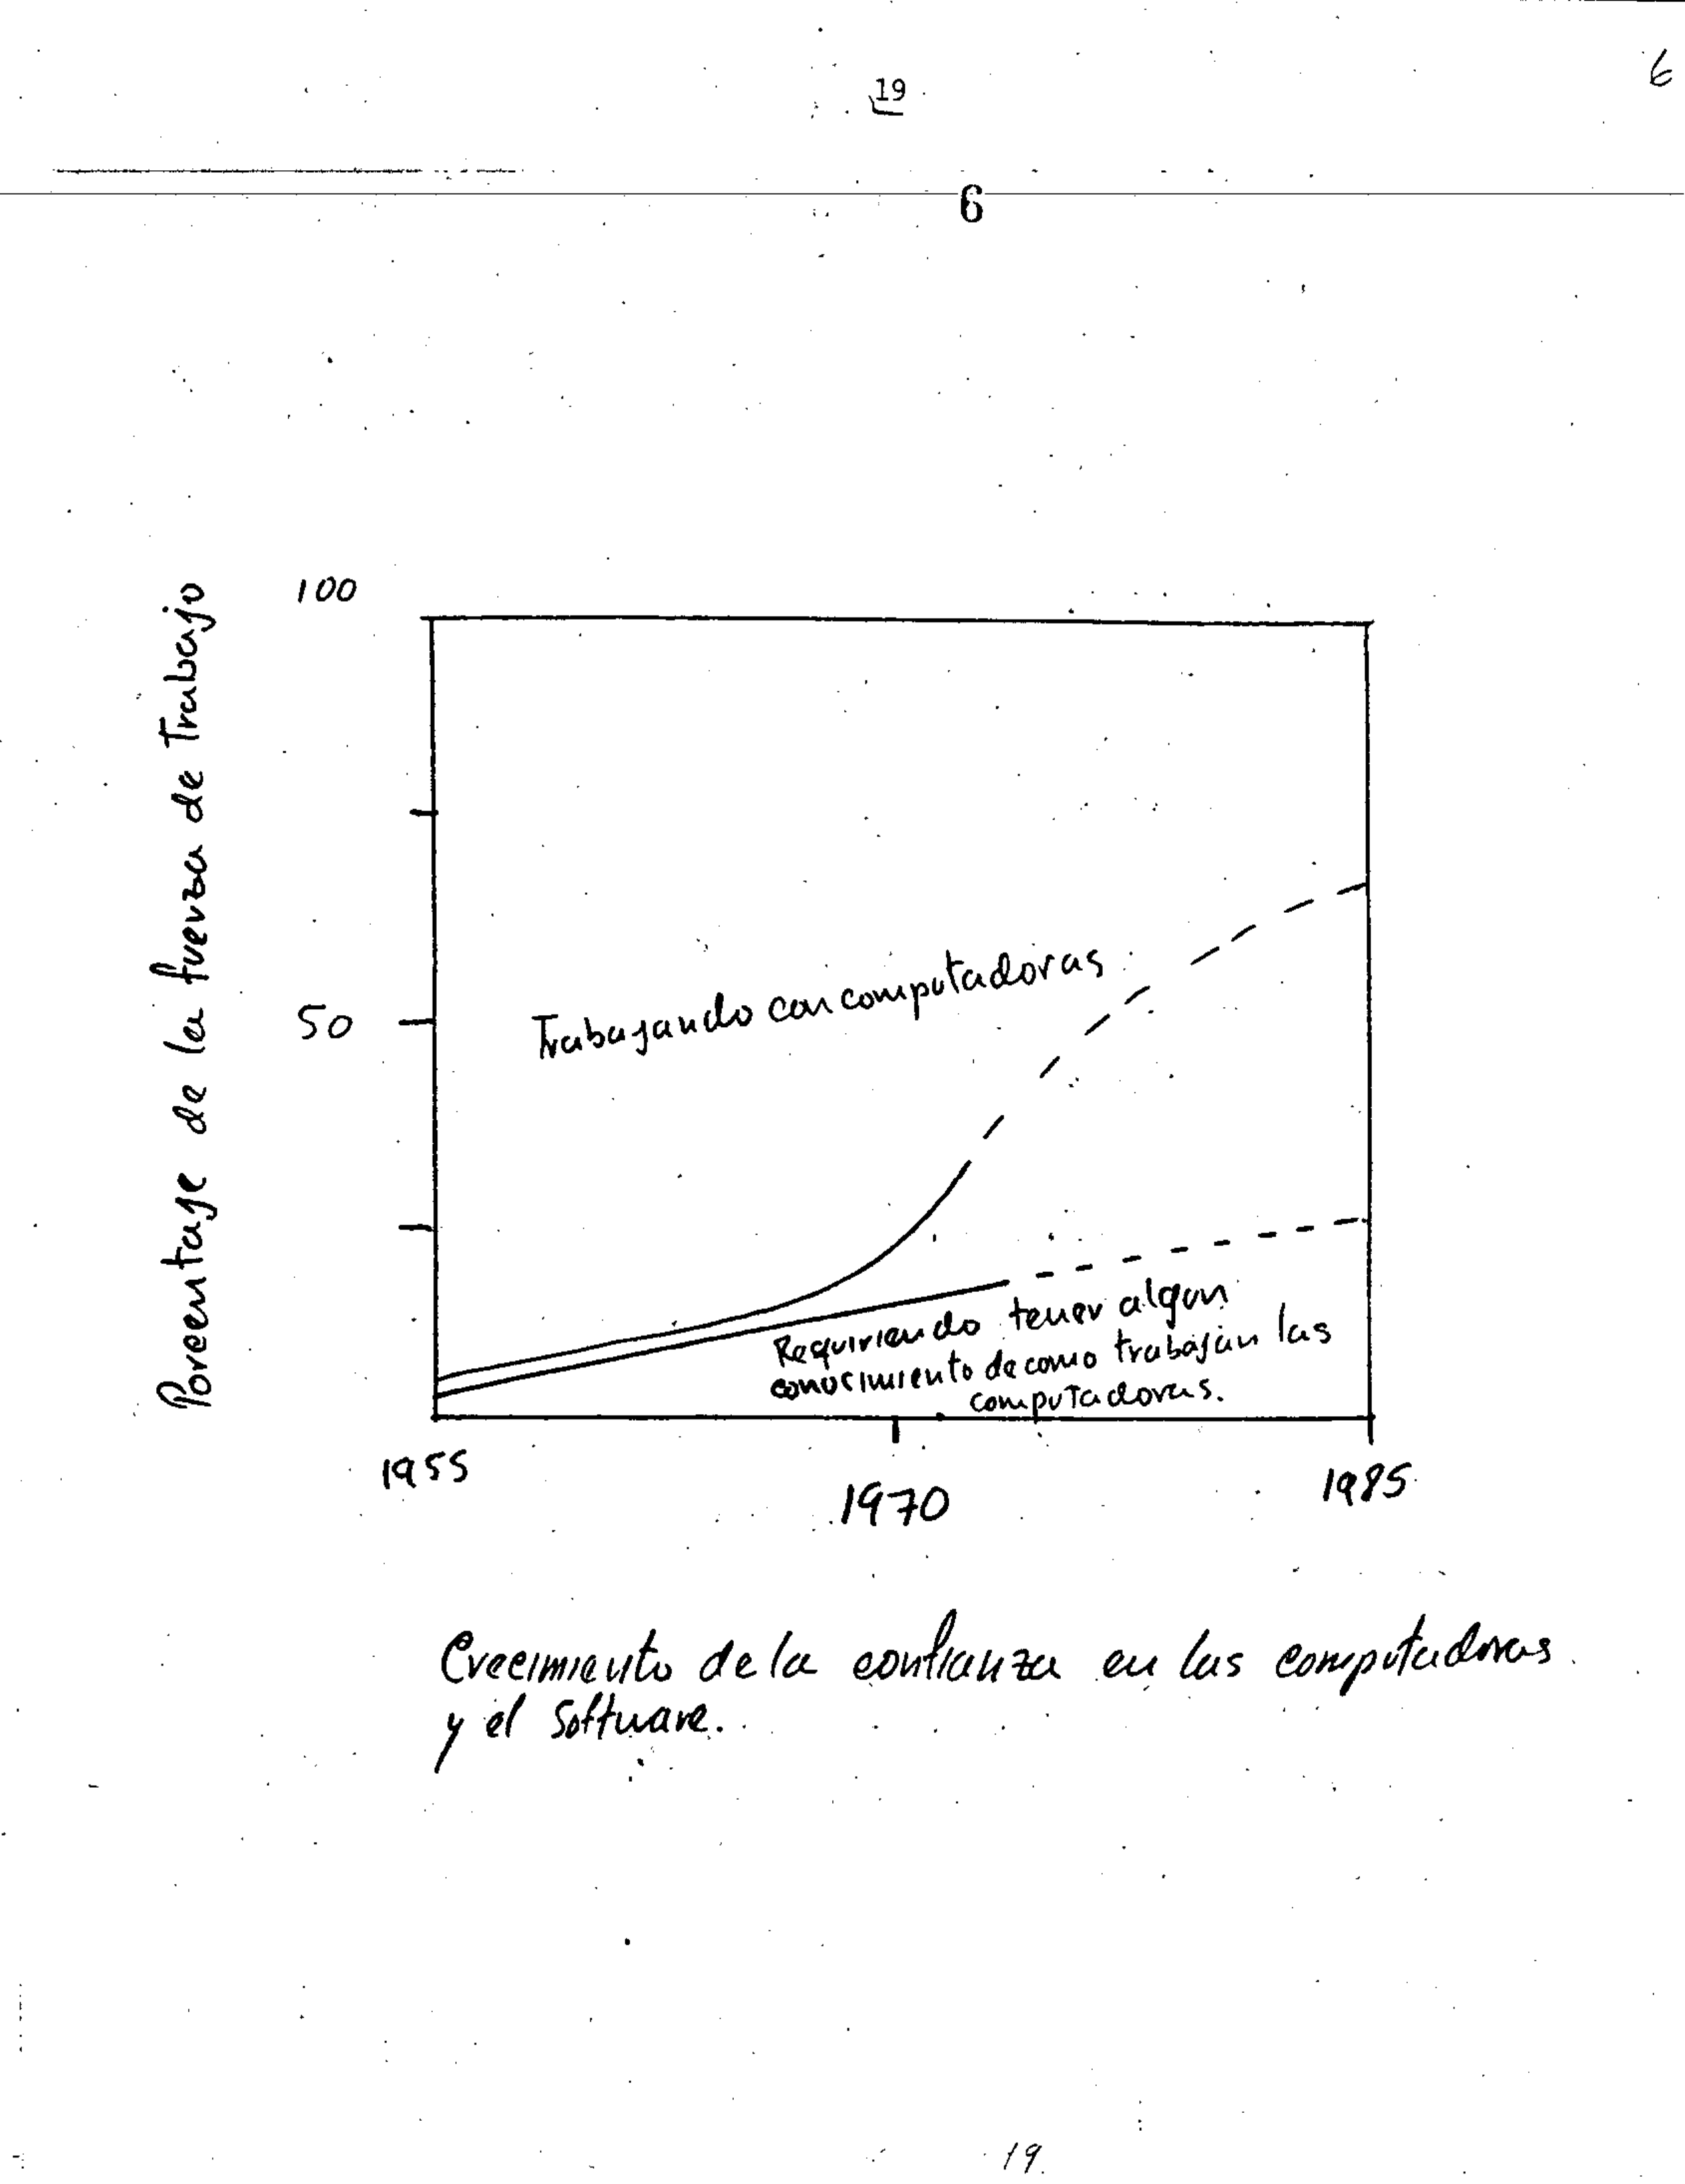 19
6
6
Porcentaje de la fuerza de Trabajo
100
50
Trabajando con computadoras
Requiriendo tener algun
conocimiento de como trabajan las
computadoras.
1955
1970
1985
Crecimiento de la confianza en las computadoras
y el Software.
19.